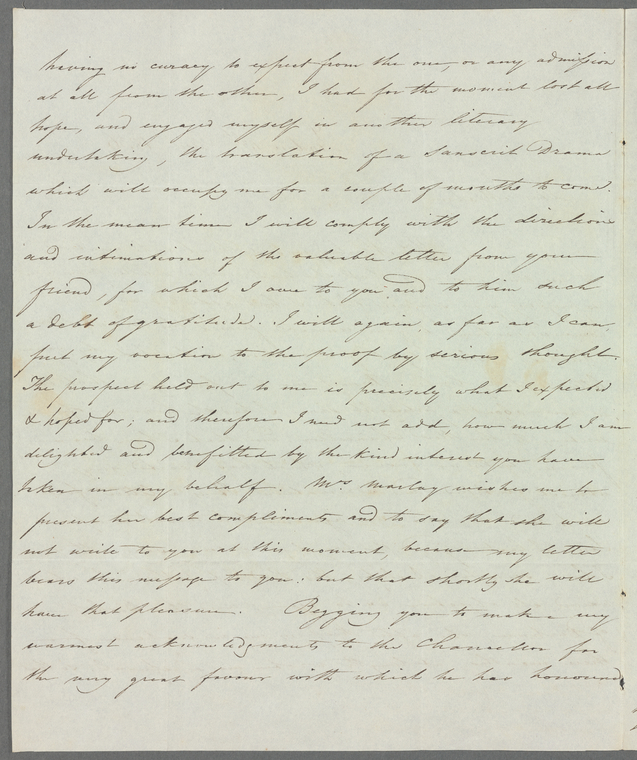 having no curacy to expect from the one, or any admission
at all from the other, I had for the moment lost all
hope, and engaged myself in another literary
undertaking, the translation of a Sanscrit Drama
which will occupy me for a couple of months to come.
In the mean time I will comply with the directions
and intimations of the valuable letter from your
friend, for which I owe to you and to him such
a debt of gratitude. I will again, as far as I can,
put my vocation to the proof by serious thought.
The prospect held out to me is precisely what I expected
& hoped for; and therefore I need not add, how much I am
delighted and benefitted by the kind interest you have
taken in my behalf. Mrs Marlay wishes me to
present her best compliments, and to say that she will
not write to you at this moment, because my letter
bears this message to you: but that shortly she will
have that pleasure. Begging you to make my
warmest acknowledgments to the Chancellor for
the very great favour with which he has honoured